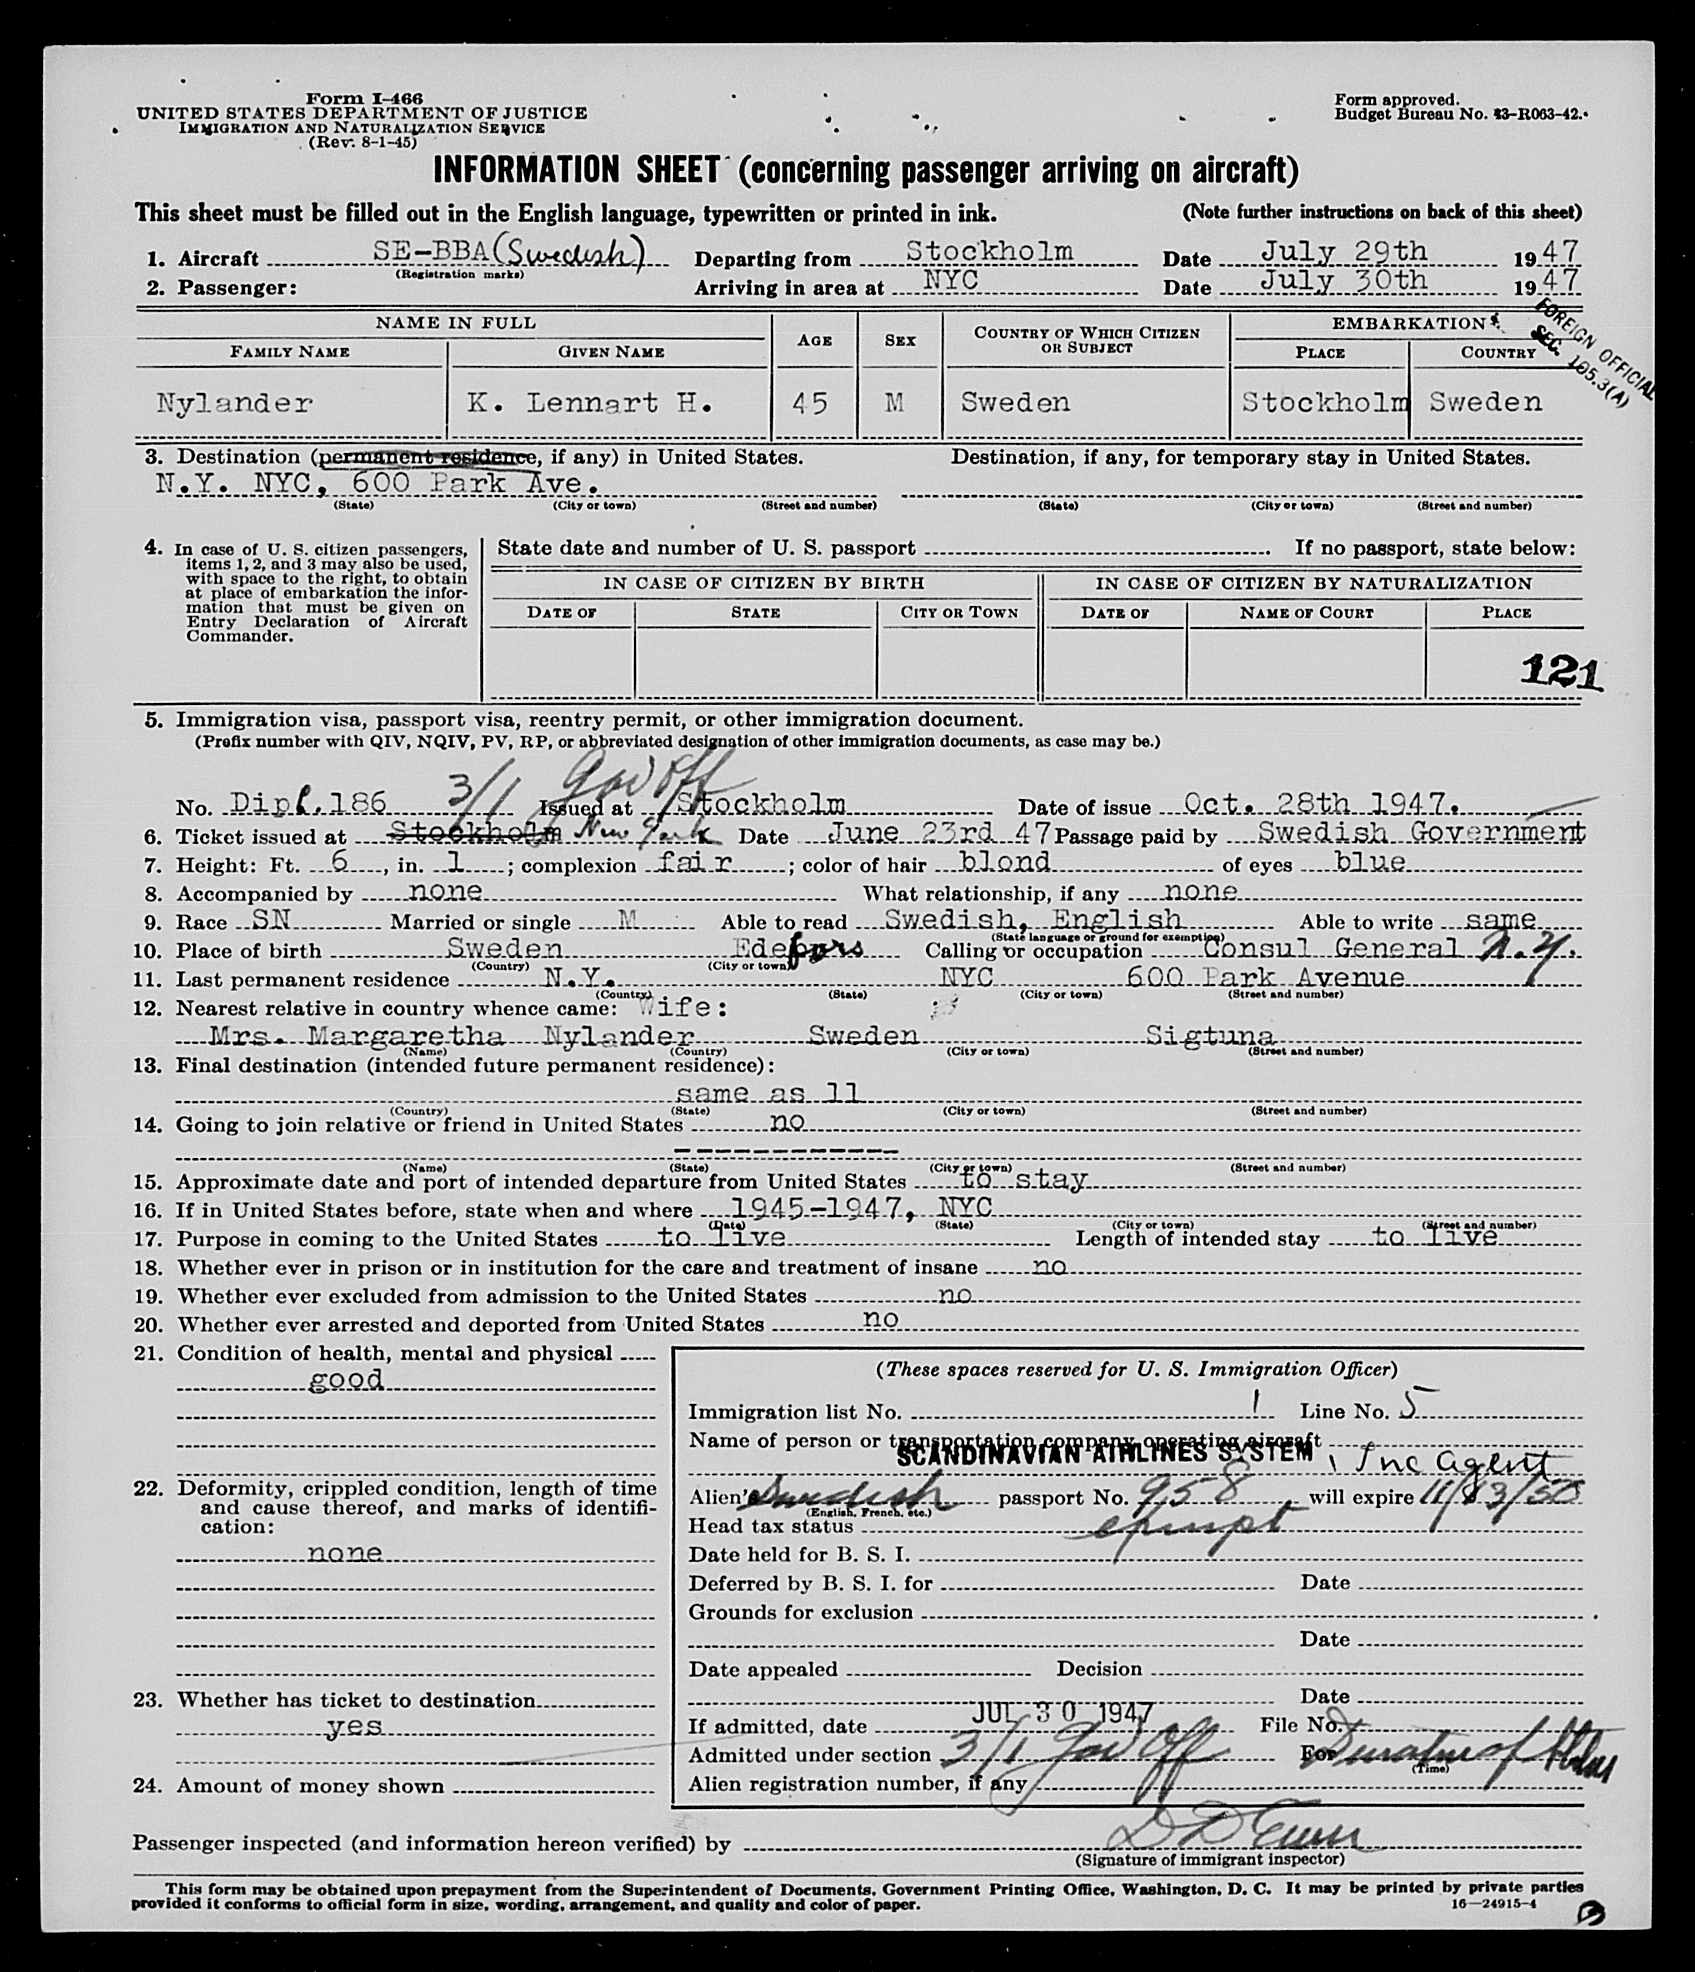 Form I-466
UNITED STATES DEPARTMENT OF JUSTICE
IMMIGRATION AND NATURALIZATION SERVICE
(Rev. 8-1-45)
Form approved.
Budget Bureau No. 43-R063-42.
INFORMATION SHEET (concerning passenger arriving on aircraft)
This sheet must be filled out in the English language, typewritten or printed in ink. (Note further instructions on back of this sheet)
1. Aircraft SE-BBA (Swedish) Departing from Stockholm Date July 29th 1947
(Registration marks)
2. Passenger: Arriving in area at NYC Date July 30th 1947
FOREIGN OFFICIAL
SEC. 105.3(A)
NAME IN FULL AGE SEX COUNTRY OF WHICH CITIZEN OR SUBJECT EMBARKATION
FAMILY NAME GIVEN NAME PLACE COUNTRY
Nylander K. Lennart H. 45 M Sweden Stockholm Sweden
3. Destination (permanent residence, if any) in United States. Destination, if any, for temporary stay in United States.
N.Y. NYC, 600 Park Ave.
(State) (City or town) (Street and number) (State) (City or town) (Street and number)
4. In case of U. S. citizen passengers,
items 1, 2, and 3 may also be used,
with space to the right, to obtain
at place of embarkation the infor-
mation that must be given on
Entry Declaration of Aircraft
Commander.
State date and number of U. S. passport If no passport, state below:
IN CASE OF CITIZEN BY BIRTH IN CASE OF CITIZEN BY NATURALIZATION
DATE OF STATE CITY OR TOWN DATE OF NAME OF COURT PLACE
121
5. Immigration visa, passport visa, reentry permit, or other immigration document.
(Prefix number with QIV, NQIV, PV, RP, or abbreviated designation of other immigration documents, as case may be.)
3/1 Gov Off
No. Dipl. 186 Issued at Stockholm Date of issue Oct. 28th 1947.
6. Ticket issued at Stockholm New York Date June 23rd 47 Passage paid by Swedish Government
7. Height: Ft. 6, in. 1; complexion fair; color of hair blond of eyes blue
8. Accompanied by none What relationship, if any none
9. Race SN Married or single M Able to read Swedish, English Able to write same
(State language or ground for exemption)
10. Place of birth Sweden Edefors Calling or occupation Consul General N.Y.
(Country) (City or town)
11. Last permanent residence N.Y. NYC 600 Park Avenue
(Country) (State) (City or town) (Street and number)
12. Nearest relative in country whence came: Wife:
Mrs. Margaretha Nylander Sweden Sigtuna
(Name) (Country) (City or town) (Street and number)
13. Final destination (intended future permanent residence):
same as 11
(Country) (State) (City or town) (Street and number)
14. Going to join relative or friend in United States no
------------
(Name) (State) (City or town) (Street and number)
15. Approximate date and port of intended departure from United States to stay
16. If in United States before, state when and where 1945-1947, NYC
(Date) (State) (City or town) (Street and number)
17. Purpose in coming to the United States to live Length of intended stay to live
18. Whether ever in prison or in institution for the care and treatment of insane no
19. Whether ever excluded from admission to the United States no
20. Whether ever arrested and deported from United States no
21. Condition of health, mental and physical
good
22. Deformity, crippled condition, length of time
and cause thereof, and marks of identifi-
cation:
none
23. Whether has ticket to destination
yes
24. Amount of money shown
(These spaces reserved for U. S. Immigration Officer)
Immigration list No. 1 Line No. 5
Name of person or transportation company operating aircraft
SCANDINAVIAN AIRLINES SYSTEM, Inc agent
Alien's Swedish passport No. 958 will expire 11/13/50
(English, French, etc.)
Head tax status exempt
Date held for B. S. I.
Deferred by B. S. I. for Date
Grounds for exclusion
Date
Date appealed Decision
Date
If admitted, date JUL 30 1947 File No.
Admitted under section 3/1 Gov Off For Duration of Status
(Time)
Alien registration number, if any
Passenger inspected (and information hereon verified) by
(Signature of immigrant inspector)
This form may be obtained upon prepayment from the Superintendent of Documents, Government Printing Office, Washington, D. C. It may be printed by private parties
provided it conforms to official form in size, wording, arrangement, and quality and color of paper. 16—24915-4